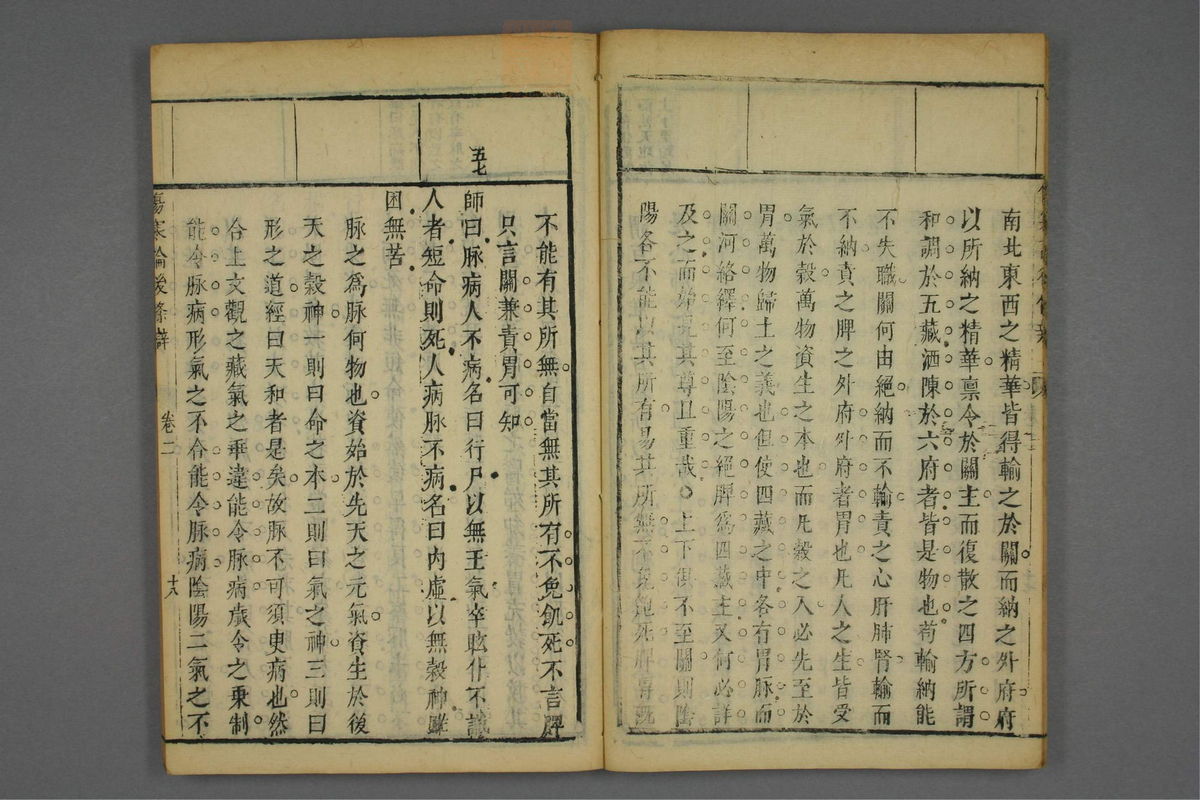 南北東西之精華皆得輸之於關而納之外府府
以所納之精華禀令於關主而復散之四方所謂
和調於五藏洒陳於六府者皆是物也苟輸納能
不失職關何由絕納而不輸責之心肝肺腎輸而
不納責之脾之外府外府者胃也凡人之生皆受
氣於穀萬物資生之本也而凡穀之入必先至於
胃萬物歸土之義也但使四藏之中各有胃脉而
關河絡繹何至陰陽之絕脾爲四藏主又何必詳
及之而始見其尊且重哉○上下俱不至關則陰
陽各不能以其所有易其所無不免絕死脾胃旣
不能有其所無自當無其所有不免飢死不言脾
只言關兼責胃可知
五七
師曰脉病人不病名曰行尸以無王氣卒眩仆不識
人者短命則死人病脉不病名曰內虛以無穀神雖
困無苦
脉之爲脉何物也資始於先天之元氣資生於後
天之穀神一則曰命之本二則曰氣之神三則曰
形之道經曰天和者是矣故脉不可須臾病也然
合上文觀之藏氣之乖違能令脉病歲令之乘制
能令脉病形氣之不合能令脉病陰陽二氣之不
傷寒論後條辨
卷二
十八